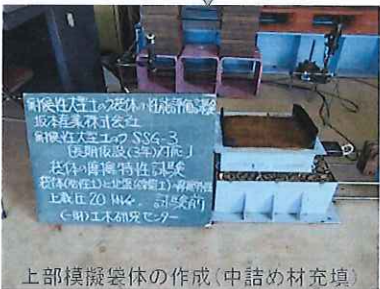 耐候性大型土のう袋体の性能評価試験
坂本産業株式会社
耐候性大型土のう SSG-3
「長期仮設(3年)対応」
袋体の摩擦特性試験
袋体(粘性土)と地盤(砕石)の摩擦特性
上載圧20 kN/㎡ 試験前
(一財)土木研究センター
上部模擬袋体の作成(中詰め材充填)